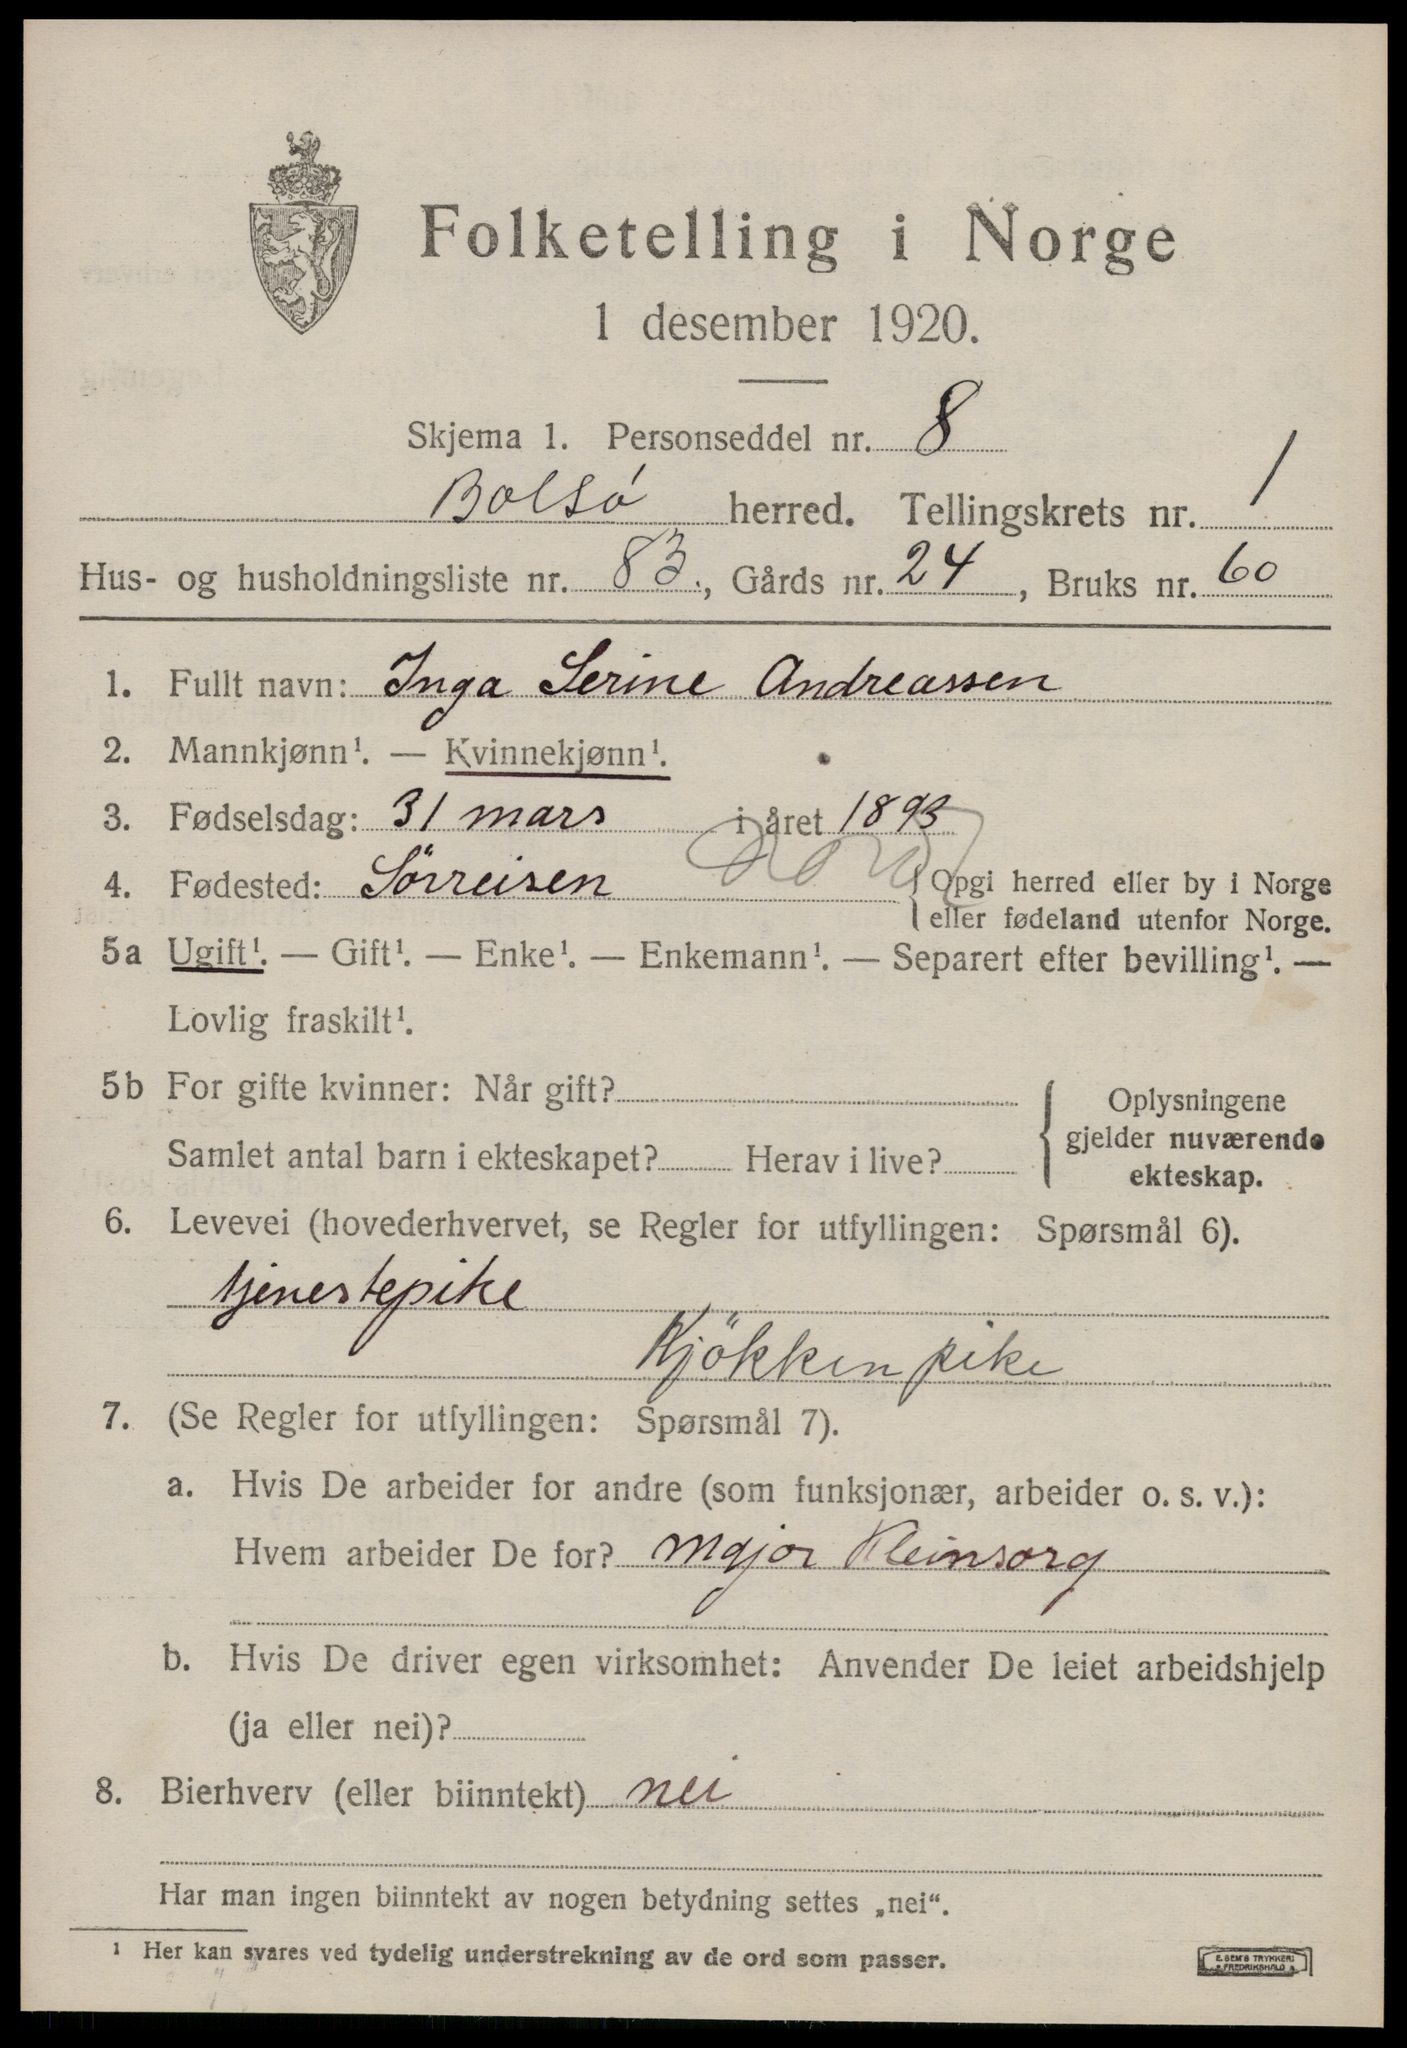 Folketelling i Norge
1 desember 1920.
Skjema 1. Personseddel nr. 8
Bolsö herred. Tellingskrets nr. 1
Hus- og husholdningsliste nr. 83., Gårds nr. 24, Bruks nr. 60
1. Fullt navn: Inga Serine Andreassen
2. Mannkjønn¹. — Kvinnekjønn¹.
3. Fødselsdag: 31 mars i året 1893
4. Fødested: Sörreisen { Opgi herred eller by i Norge
eller fødeland utenfor Norge.
5a Ugift¹. — Gift¹. — Enke¹. — Enkemann¹. — Separert efter bevilling¹. —
Lovlig fraskilt¹.
5b For gifte kvinner: Når gift?
Samlet antal barn i ekteskapet? Herav i live?
Oplysningene
gjelder nuværende
ekteskap.
6. Levevei (hovederhvervet, se Regler for utfyllingen: Spørsmål 6).
tjenestepike
Kjökkenpike
7. (Se Regler for utfyllingen: Spørsmål 7).
a. Hvis De arbeider for andre (som funksjonær, arbeider o. s. v.):
Hvem arbeider De for? Major Kleinsorg
b. Hvis De driver egen virksomhet: Anvender De leiet arbeidshjelp
(ja eller nei)?
8. Bierhverv (eller biinntekt) nei
Har man ingen biinntekt av nogen betydning settes „nei“.
¹ Her kan svares ved tydelig understrekning av de ord som passer.
E. SEM'S TRYKKERI
FREDRIKSHALD